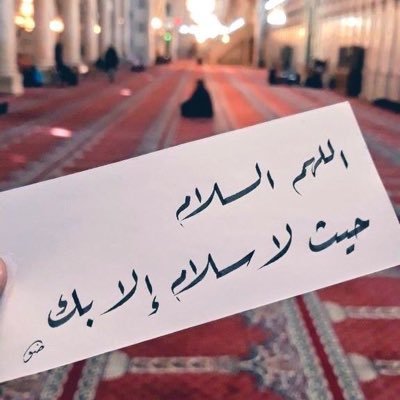 اللهم السلام
حيث لا سلام إلا بك
ضو